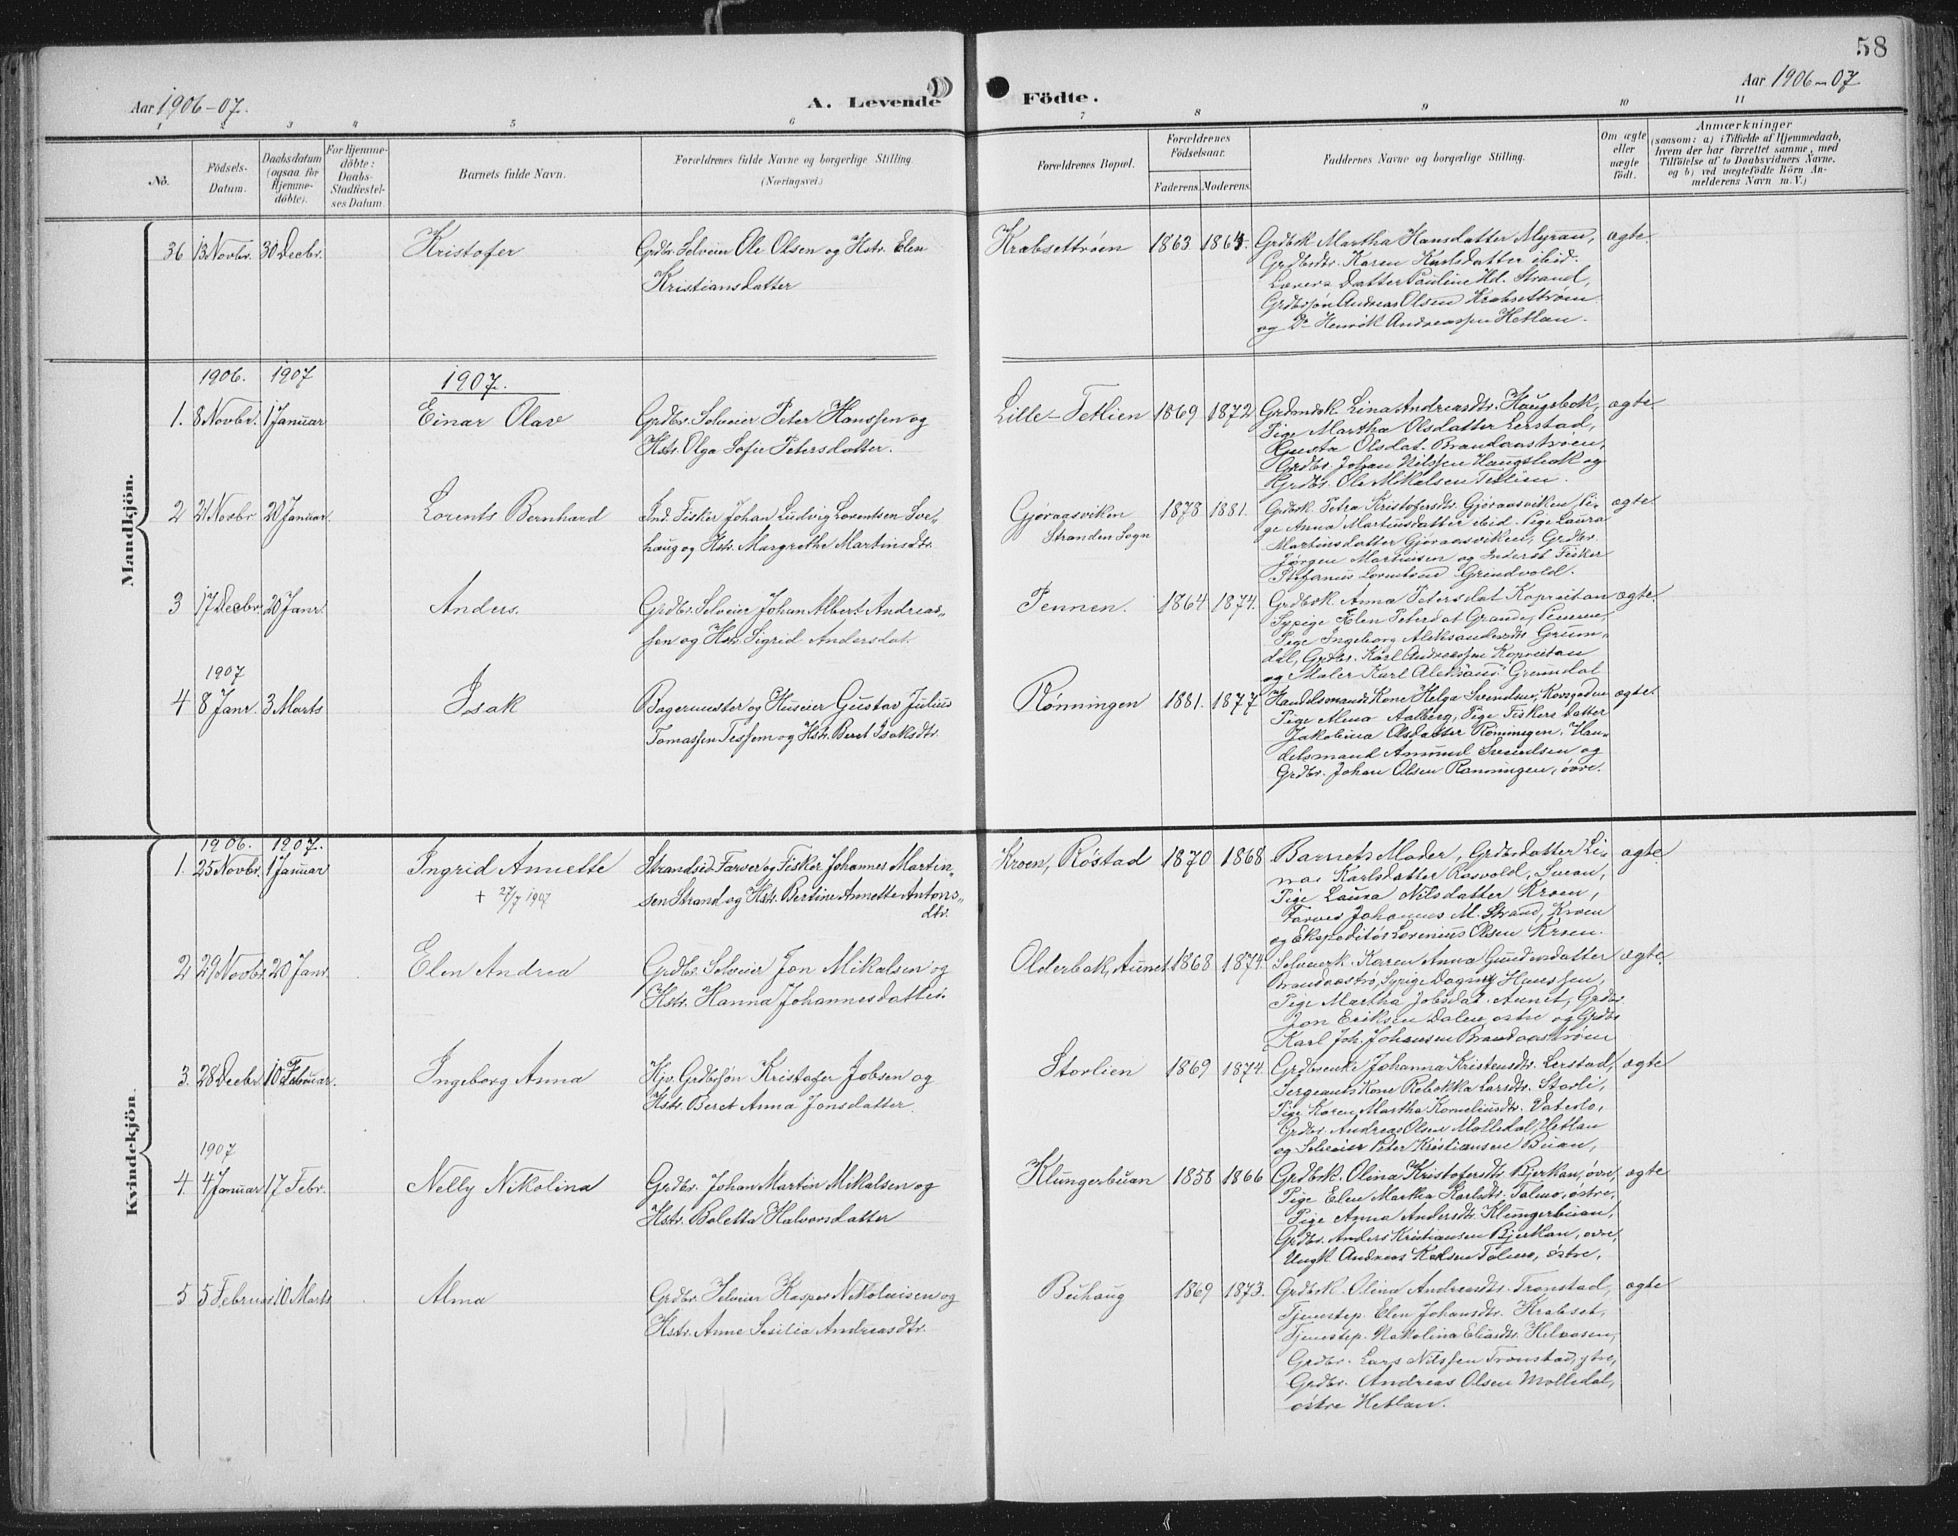 58
Aar 1906-07.
A. Levende Födte.
Aar 1906-07
1 2 3 4 5 6 7 8 9 10 11
No.
Födsels-Datum.
Daabsdatum (ogsaa for Hjemme-döbte).
For Hjemme-döbte: Daabs-Stadfæstel-ses Datum
Barnets fulde Navn.
Forældrenes fulde Navne og borgerlige Stilling.
(Næringsvei.)
Forældrenes Bopæl.
Forældrenes Födselsaar.
Faderens. Moderens.
Faddernes Navne og borgerlige Stilling.
Om ægte eller uægte födt.
Anmærkninger
(saasom: a) i Tilfælde af Hjemmedaab,
hvem der har forrettet samme, med
Tilföielse af to Daabsvidners Navne,
og b) ved uægtefödte Börn An-
melderens Navn m. V.)
Mandkjön.
36 13 Novbr. 30 Decbr. Kristofer
Grdbr. Selveier Ole Olsen og Hstr. Elen
Kristiansdatter
Krabsettrøen 1863 1864.
Grdbsk. Martha Hansdatter Myran,
Grdbrdtr. Karen Karlsdatter ibid.
Lærers Datter Pauline Kd. Strand,
Grdbrsøn Andreas Olsen Krabsettrøen
og Do Henrik Andreassen Hetlan.
ægte.
1906. 1907
1907.
1. 8 Novbr. 1 Januar Einar Olav
Grdbr. Selveier Peter Hanssen og
Hstr. Olga Sofie Petersdatter.
Lille-Tetlien 1869 1872
Grdmdsk. Lina Andreasdtr. Haugsbak,
Pige Martha Olsdatter Lerstad,
Gusta Olsdat. Brandaastrøen,
Grdbr. Johan Nilssen Haugsbak og
Grdbr. Ole Mikalsen Tetlien.
ægte.
2 21 Novbr 20 Januar Lorents Bernhard
Ind. Fisker Johan Ludvig Lorentsen Sve-
haug og Hstr. Margrethe Martinsdtr.
Gjøraasviken
Stranden Sogn
1878 1881.
Grdbsk. Petra Kristofersdtr. Gjøraasviken, Pi-
ge Anna Martinsdatter ibid. Pige Laura
Martinsdatter Gjøraasviken, Grdbr.
Jørgen Martinsen og Inderst Fisker
Stefanus Lorentsen Grindvold.
ægte.
3 17 Decbr. 20 Janr. Anders.
Grdbr. Selveier Johan Albert Andreas-
sen og Hstr. Sigrid Andersdat.
Pennen. 1864 1874.
Grdbsk. Anna Petersdat. Kopreitan
Sypige Elen Petersdat Grande, Pennen,
Pige Ingeborg Aleksandersdtr. Grøn-
dal, Grdbr. Karl Andreassen Kopreitan
og Maler Karl Aleksand. Grøndal
ægte.
1907
4 8 Janr. 3 Marts Isak
Bagermester og Huseier Gustav Julius
Tomassen Tessem og Hstr. Beret Isaksdtr.
Rønningen 1881. 1877
Handelsmands Kone Helga Svendsen, Korsgaden
Pige Alma Aalberg, Pige Fiskers datter
Jakobina Olsdatter Rønningen, Han-
delsmand Amund Svendsen og
Grdbr. Johan Olsen Rønningen, øvre.
ægte.
Kvindekjön.
1906. 1907.
1. 25 Novbr. 1 Januar Ingrid Annette
+ 27/7 1907
Strandsid. Farver og Fisker Johannes Martin-
sen Strand og Hstr. Bertine Annette Antons-
dtr.
Kroen, Røstad 1870 1868
Barnets Moder, Grdbrdatter Li-
na Karlsdatter Rosvold,
Pige Laura Nilsdatter Kroen,
Farver Johannes M. Strand, Kroen
og Ekspeditør Lorenius Olsen Kroen.
ægte
2 29 Novbr. 20 Janr. Elen Andrea
Grdbr. Selveier Jon Mikalsen og
Hstr. Hanna Johannesdatter.
Olderbak, Aunet. 1868 1874.
Selveierk. Karen Anna Gundersdatter
Brandaastrø, Sypige Dagny Hanssen,
Pige Martha Jobsdat. Aunet, Grdbr.
Jon Eriksen Dalen østre og Grdbr.
Karl Joh. Johansen Brandaastrøen
ægte.
3. 28 Decbr. 10 Februar. Ingeborg Anna
Hjv. Grdbrsøn Kristofer Jobsen og
Hstr. Beret Anna Jonsdatter.
Storlien 1869 1874.
Grdbrenke Johanna Kristensdtr. Lerstad,
Sergeants Kone Rebekka Larsdtr. Storli,
Pige Karen Martha Korneliusdtr. Vaterlo,
Grdbr. Andreas Olsen Molledal, Hetlan
og Selveier Peter Kristiansen Buan,
ægte
1907
4. 4 Januar 17 Febr. Nelly Nikolina
Grdbr. Johan Martin Mikalsen og
Hstr. Boletta Halvorsdatter
Klungerbuan 1858 1866
Grdbrk. Olina Kristofersdtr. Bjerkan, øvre,
Pige Elen Martha Karlsdtr. Talmo, østre,
Pige Anna Andersdtr. Klungerbuan,
Grdbr. Anders Kristiansen Bjerkan, øvre,
Ungk. Andreas Karlsen Talmo, østre,
ægte
5 5 Februar 10 Marts Alma
Grdbr. Selveier Kasper Nikolaisen og
Hstr. Anne Sesilia Andreasdtr.
Buhaug 1869 1873.
Grdbrk. Olina Andreasdtr. Tronstad,
Tjenestep. Elen Johansdtr. Krabset,
Tjenestep. Nikolina Eliasdtr. Helvasen,
Grdbr. Lars Nilssen Tronstad, ytre,
Grdbr. Andreas Olsen Molledal,
østre Hetlan.
ægte